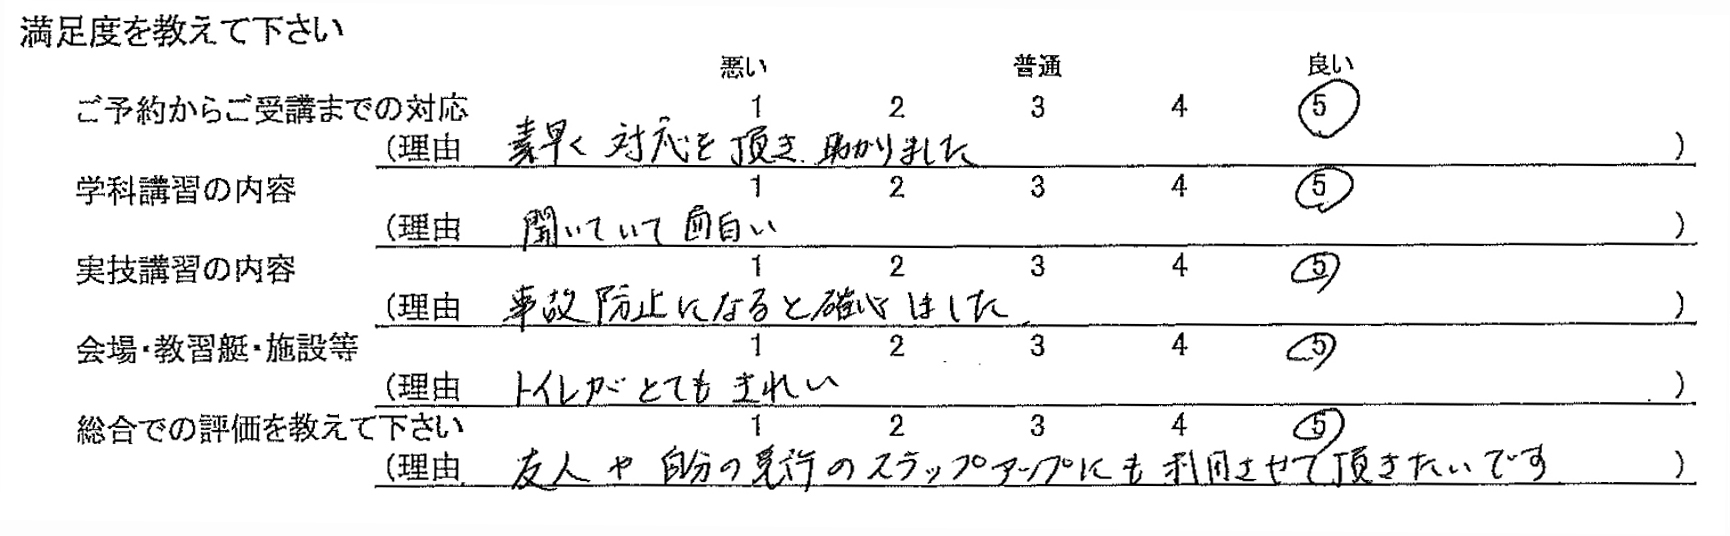 満足度を教えて下さい
悪い 普通 良い
ご予約からご受講までの対応 1 2 3 4 5
(理由 素早く対応を頂き、助かりました )
学科講習の内容 1 2 3 4 5
(理由 聞いていて面白い )
実技講習の内容 1 2 3 4 5
(理由 事故防止になると確心しました )
会場・教習艇・施設等 1 2 3 4 5
(理由 トイレがとてもきれい )
総合での評価を教えて下さい 1 2 3 4 5
(理由 友人や自分の免許のスラップアップにも利用させて頂きたいです )